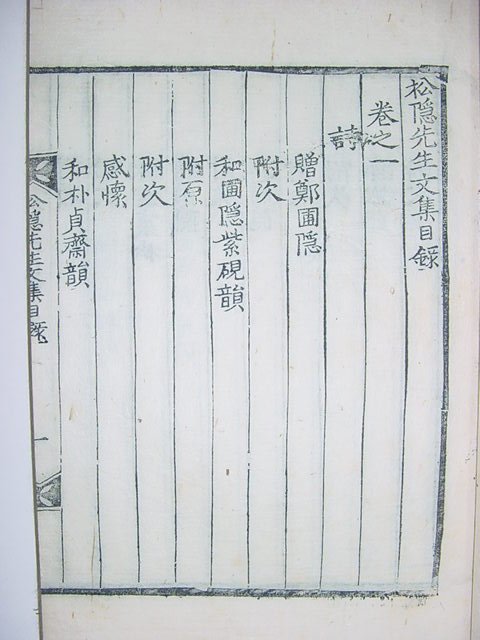 松隱先生文集目錄
卷之一
詩
贈鄭圃隱
附次
和圃隱紫硯韻
附原
附次
感懷
和朴貞齋韻
松隱先生文集目錄
一